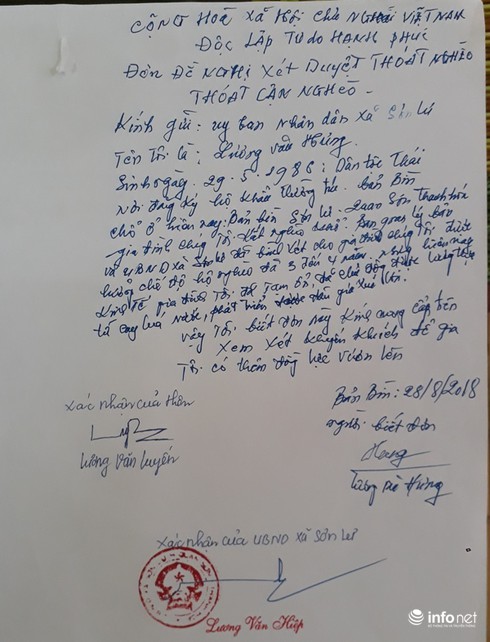 CỘNG HOÀ XÃ HỘI CHỦ NGHĨA VIỆT NAM
ĐỘC LẬP TỰ DO HẠNH PHÚC
ĐƠN ĐỀ NGHỊ XÉT DUYỆT THOÁT NGHÈO
THOÁT CẬN NGHÈO -
Kính gửi: uỷ ban nhân dân xã Sơn Lư
Tên Tôi là; Lương Văn Hùng.
Sinh ngày. 29.5.1986; Dân tộc Thái
Nơi đăng ký hộ khẩu thường trú. bản Bìn
chỗ ở hiện nay: Bản bìn Sơn Lư. Quan Sơn Thanh hóa
gia đình chúng Tôi rất nghèo Ban quản lý bản
và UBND xã đã bình xét cho gia đình chúng Tôi được
hưởng chế độ hộ nghèo đã 3 đến 4 năm hiện nay
kinh tế gia đình Tôi đã Tạm ổn, đã chủ động được lương thực
lúa nước, phát triển đàn gia
vậy Tôi biết đơn này kính mong cấp trên
xem xét khuyến khích để gia
Tôi có thêm động lực vươn lên
Bản Bìn: 28/8/2018
xác nhận của thôn
người biết đơn
Lương Văn Luyến
Hùng
Lương Hùng
xác nhận của UBND xã Sơn Lư
Lương Văn Hiệp
infonet